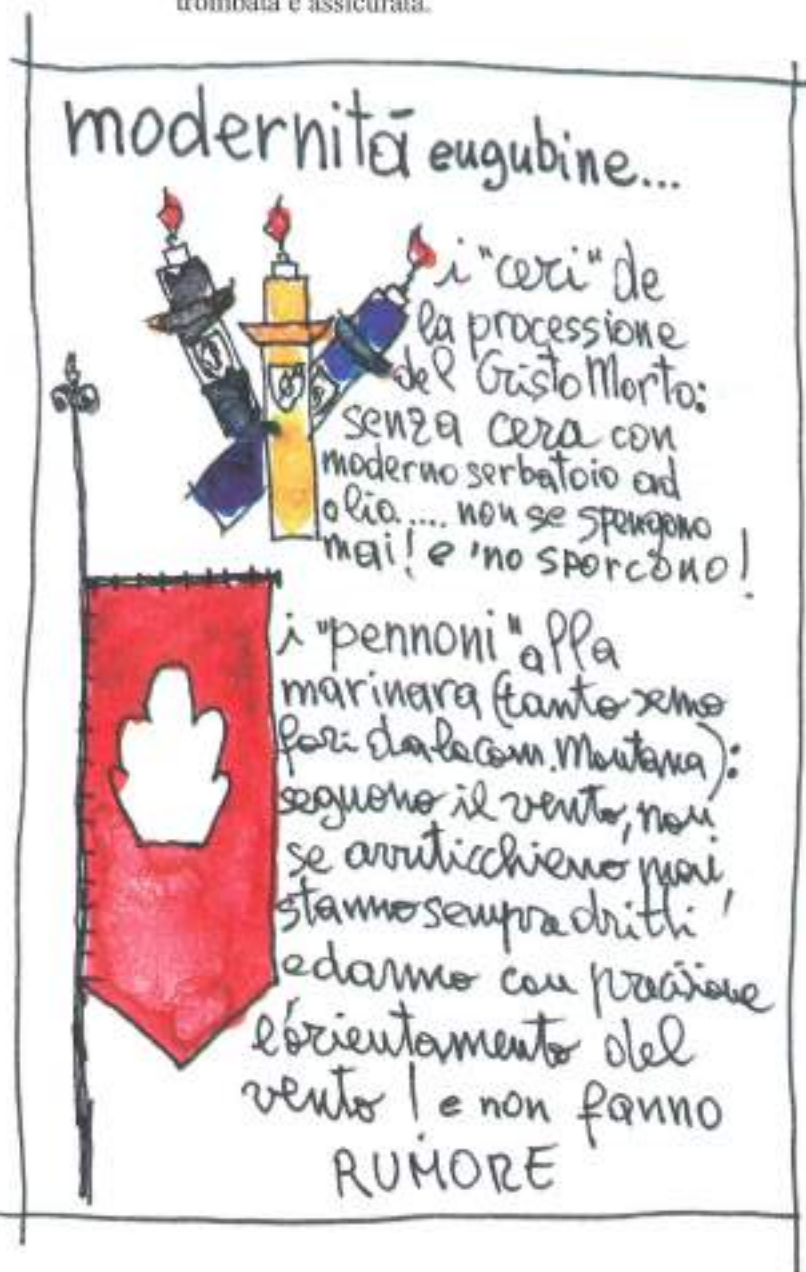 trombata è assicurata.
modernità eugubine...
i "ceri" de
la processione
del Cristo Morto:
senza cera con
moderno serbatoio ad
olio.... non se spengono
mai! e 'no sporcono!
i "pennoni" alla
marinara (tanto semo
fori da la com. Montana):
seguono il vento, non
se avuticchieno mai
stanno sempre dritti!
e danno con precisione
l'orientamento del
vento! e non fanno
RUMORE